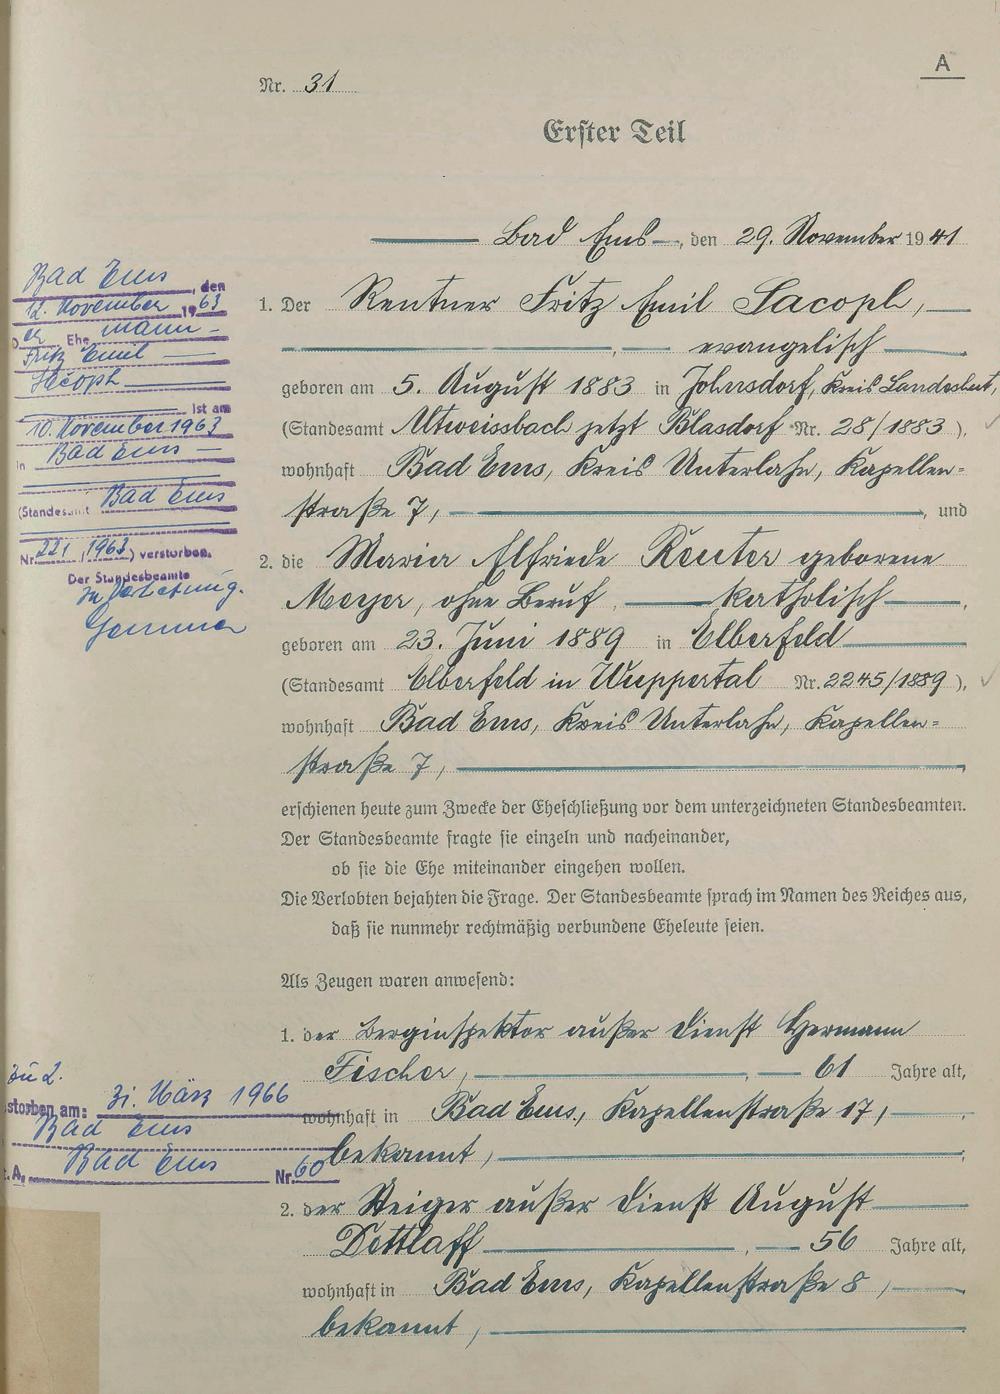 A
Nr. 31
Erster Teil
Bad Ems, den 29. November 1941
1. Der Rentner Fritz Emil Jacoph,
evangelisch
geboren am 5. August 1883 in Johnsdorf, Kreis Landeshut,
(Standesamt Altweissbach jetzt Blasdorf Nr. 28/1883),
wohnhaft Bad Ems, Kreis Unterlahn, Kapellen=
straße 7, und
2. die Maria Elfriede Reuter geborene
Meyer, ohne Beruf, katholisch,
geboren am 23. Juni 1889 in Elberfeld
(Standesamt Elberfeld in Wuppertal Nr. 2245/1889),
wohnhaft Bad Ems, Kreis Unterlahn, Kapellen=
straße 7,
erschienen heute zum Zwecke der Eheschließung vor dem unterzeichneten Standesbeamten.
Der Standesbeamte fragte sie einzeln und nacheinander,
ob sie die Ehe miteinander eingehen wollen.
Die Verlobten bejahten die Frage. Der Standesbeamte sprach im Namen des Reiches aus,
daß sie nunmehr rechtmäßig verbundene Eheleute seien.
Als Zeugen waren anwesend:
1. der Berginspektor außer Dienst Hermann
Fischer, 61 Jahre alt,
wohnhaft in Bad Ems, Kapellenstraße 17,
bekannt,
2. der Steiger außer Dienst August
Dettlaff, 56 Jahre alt,
wohnhaft in Bad Ems, Kapellenstraße 8,
bekannt,
Bad Ems, den
12. November 1963
Der Ehemann
Fritz Emil
Jacoph
ist am
10. November 1963
in Bad Ems
(Standesamt Bad Ems
Nr. 221/1963) verstorben.
Der Standesbeamte
In Vertretung.
zu 2.
storben am: 31. März 1966
Bad Ems
t. A. Bad Ems Nr. 60